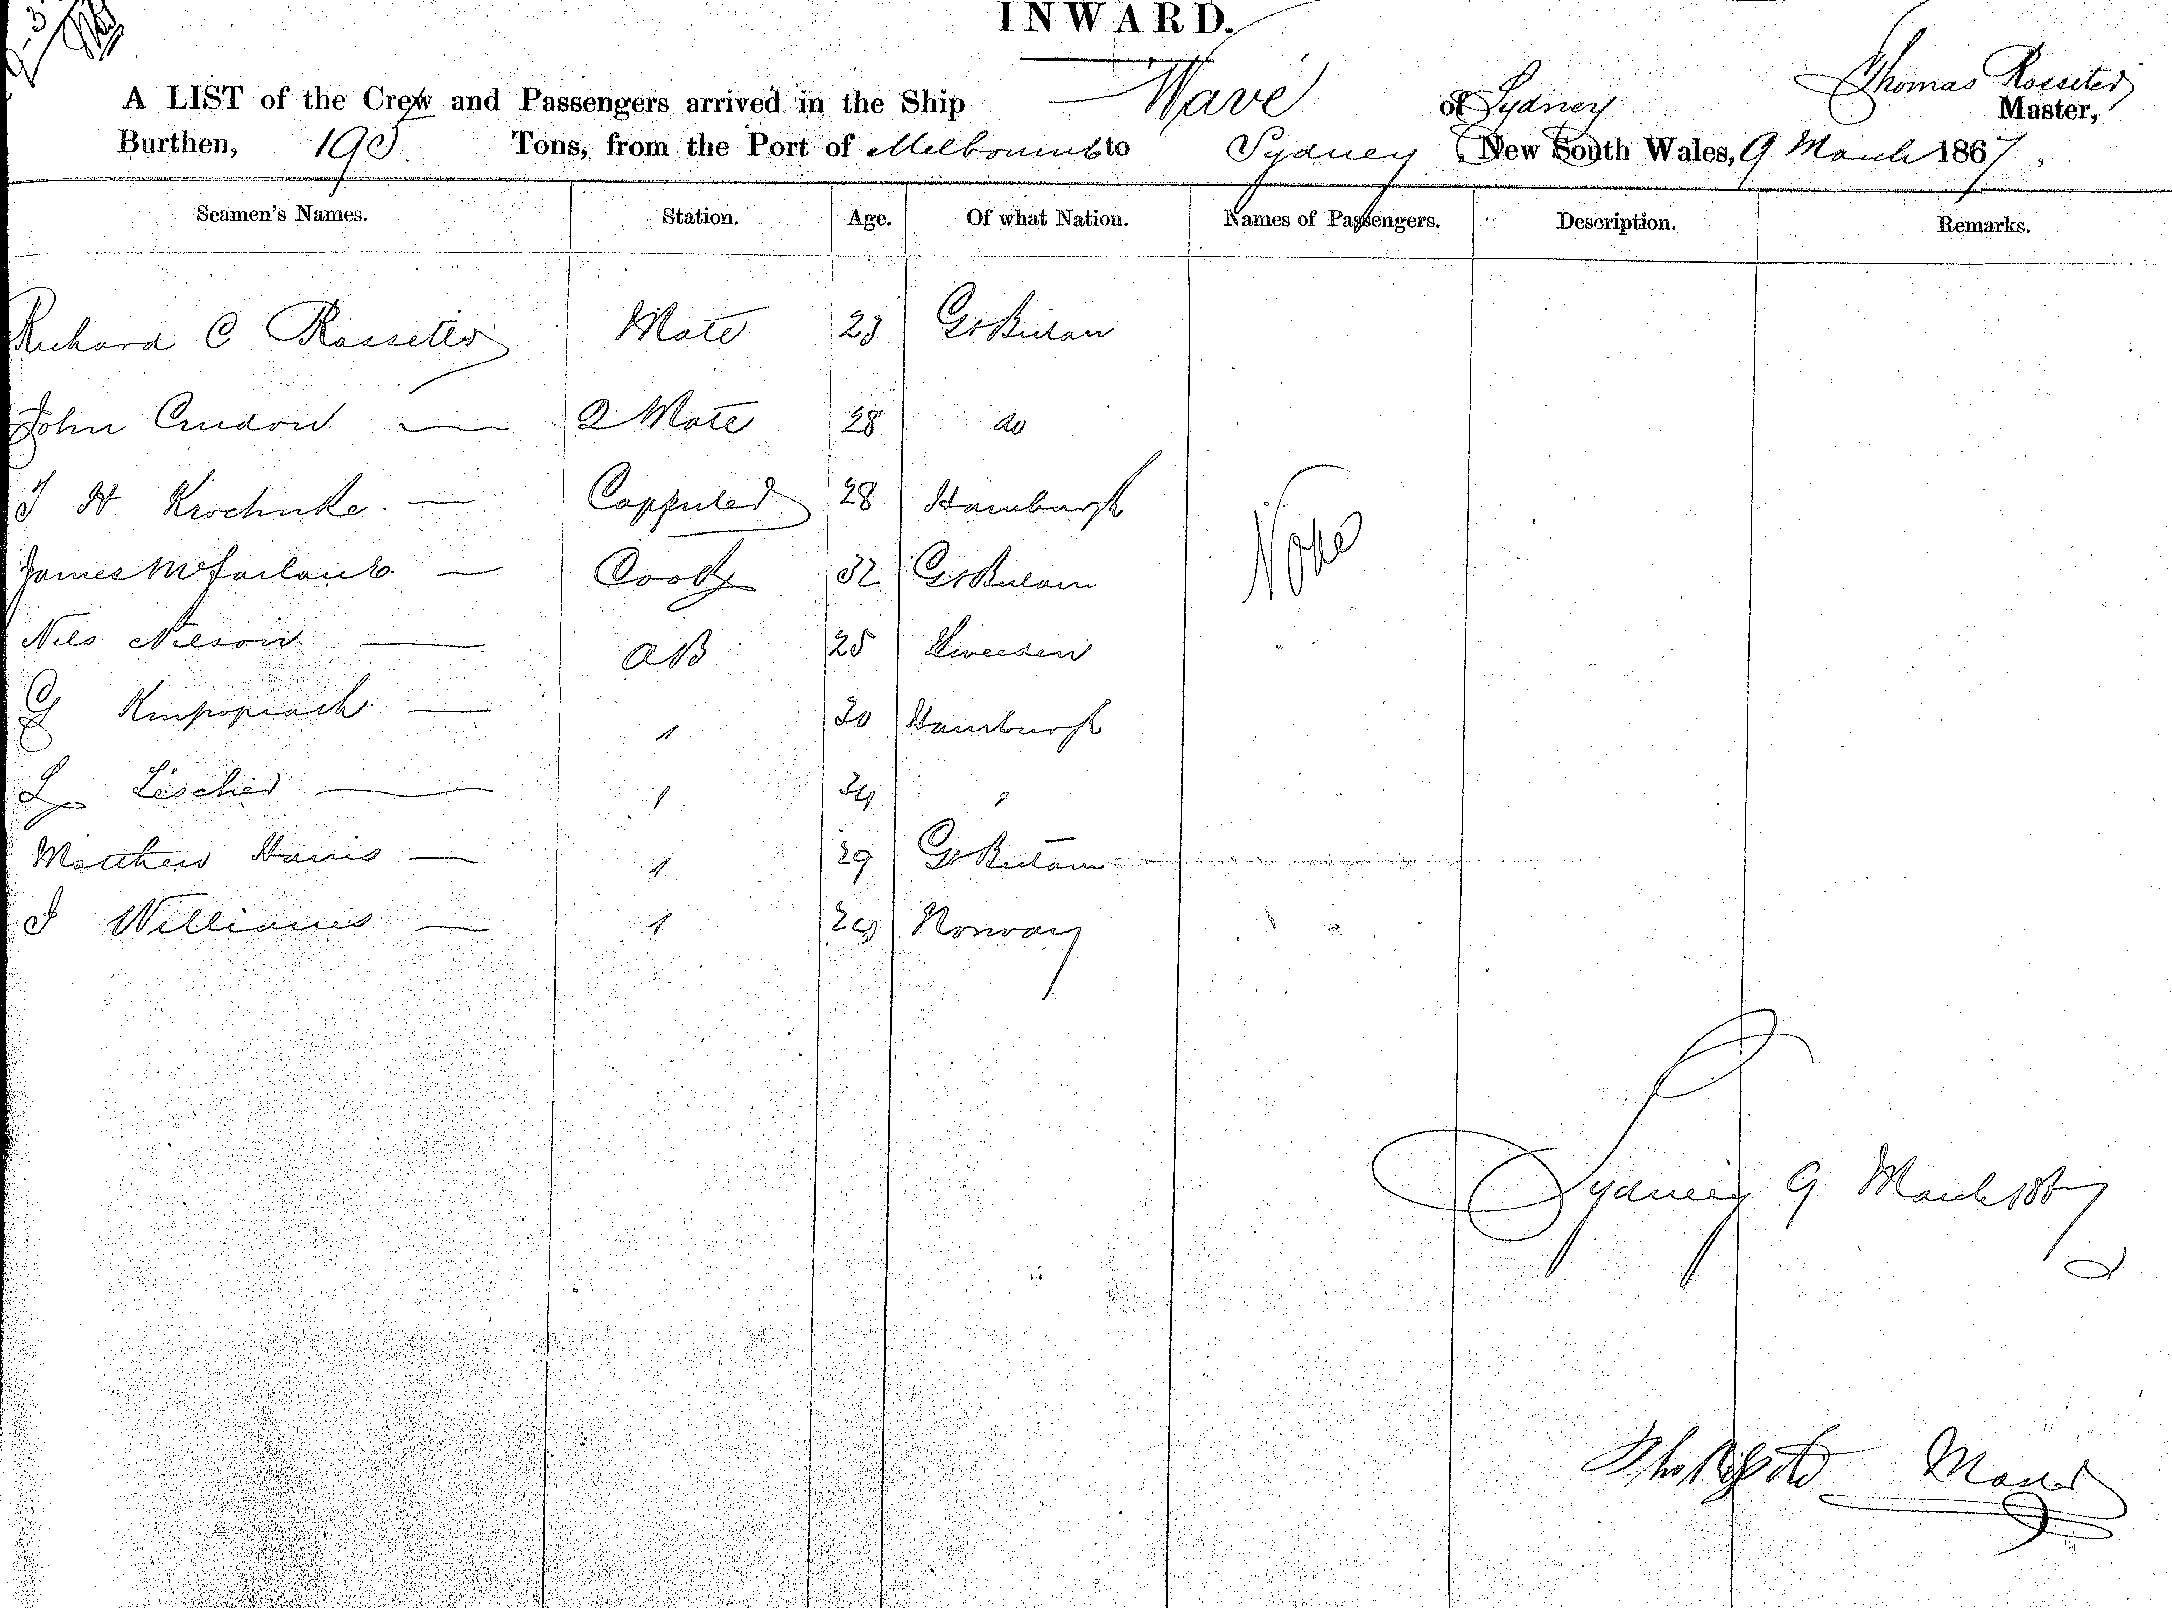 INWARD.
A LIST of the Crew and Passengers arrived in the Ship Wave of Sydney Thomas Rosseter Master,
Burthen, 195 Tons, from the Port of Melbourne to Sydney New South Wales, 9 March 1867.
Seamen's Names. Station. Age. Of what Nation. Names of Passengers. Description. Remarks.
Richard C Rosseter Mate 23 Gt Britain
John Crudon 2 Mate 28 do
28 Hamburgh
James McFarlane Cook 32 Gt Britain
None
Nils Nilson AB 25 Sweeden
G 30 Hamburgh
L Lescher " 34 "
Matthew Harris " 29 Gt Britain
J Williams " 29 Norway
Sydney 9 March 1867
Thos Rosseter Master